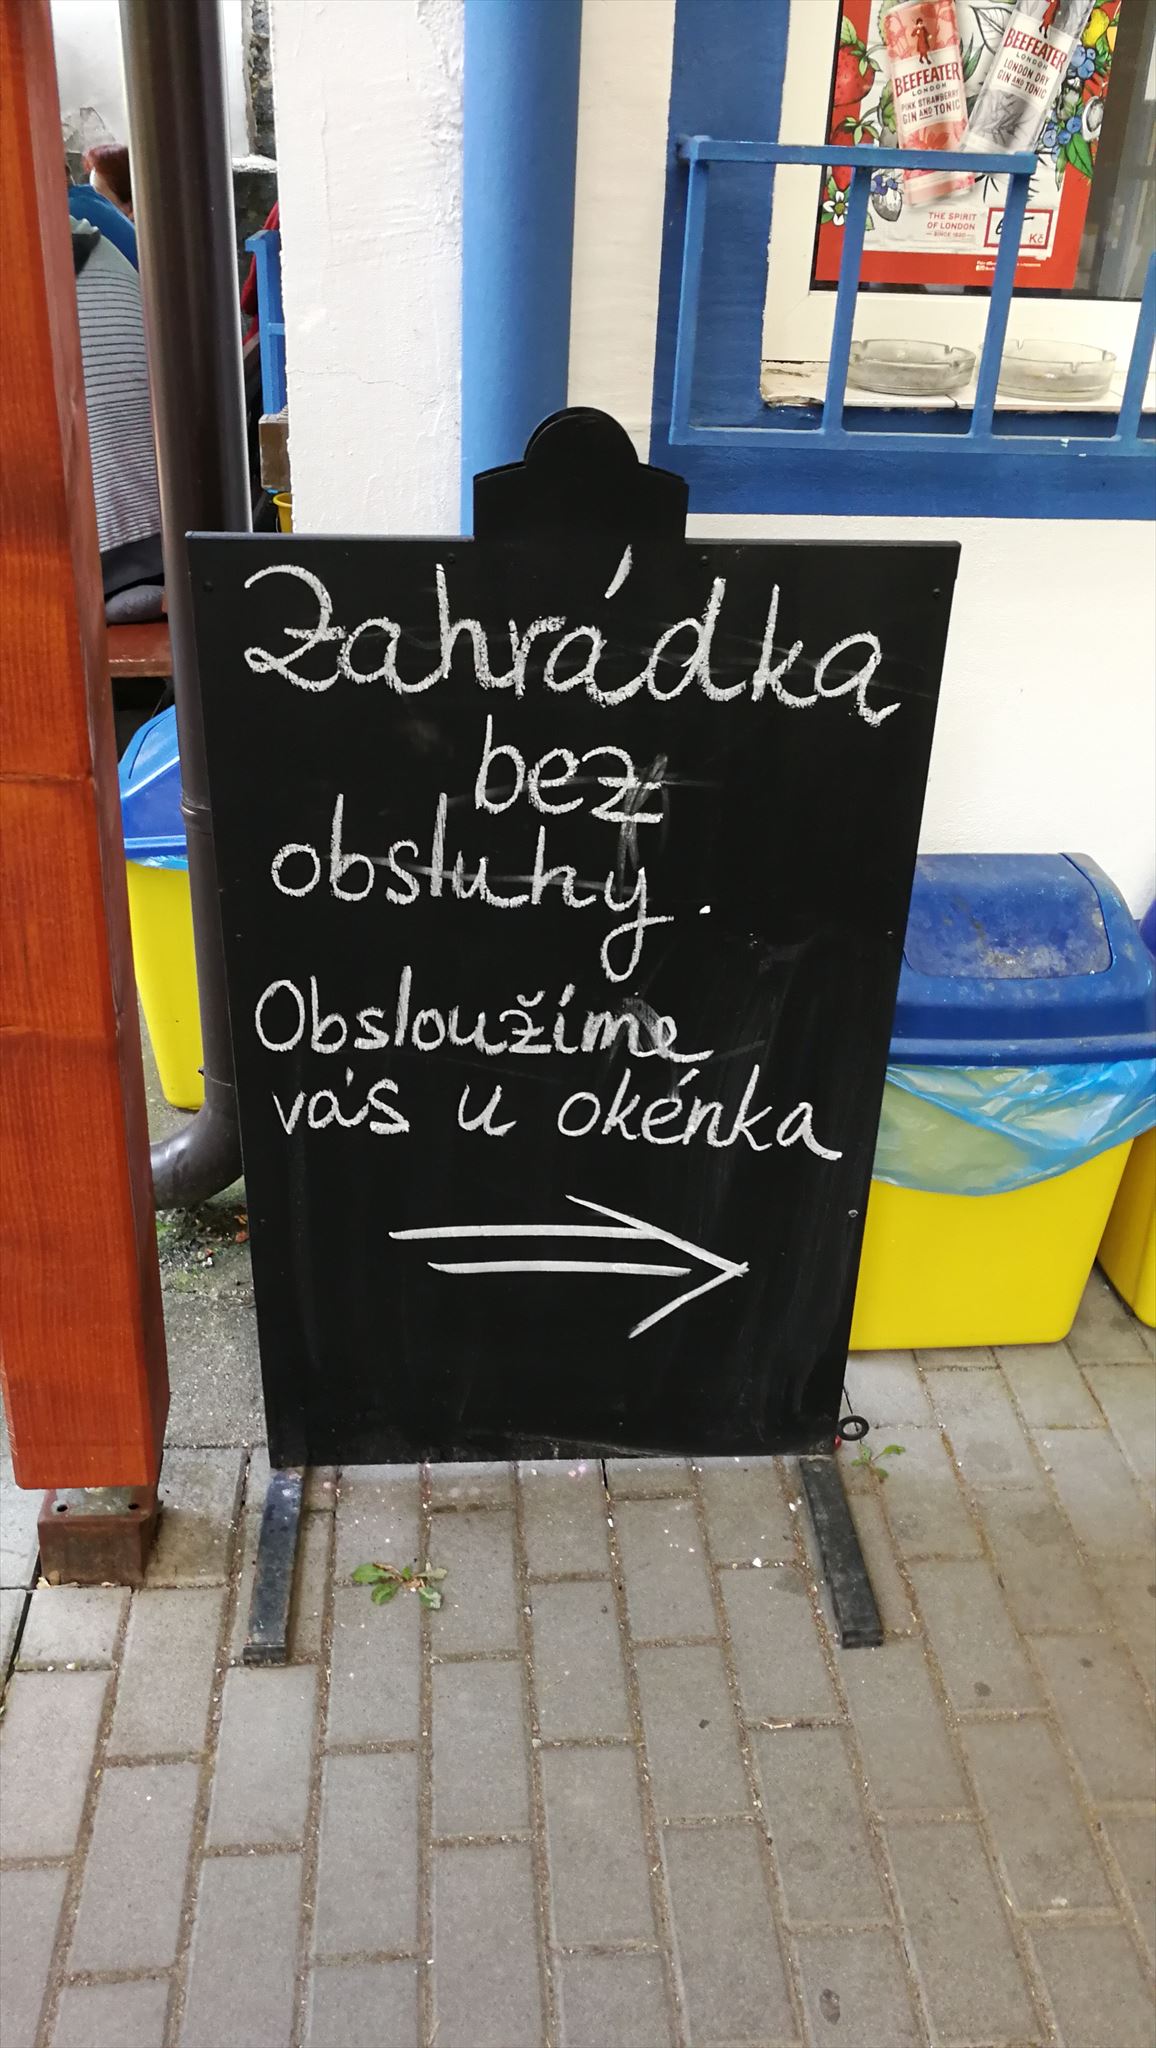 BEEFEATER
LONDON
PINK STRAWBERRY
GIN AND TONIC
BEEFEATER
LONDON
LONDON DRY
GIN AND TONIC
THE SPIRIT
OF LONDON
SINCE 1820
Kč
Zahrádka
bez
obsluhy.
Obsloužíme
vás u okénka